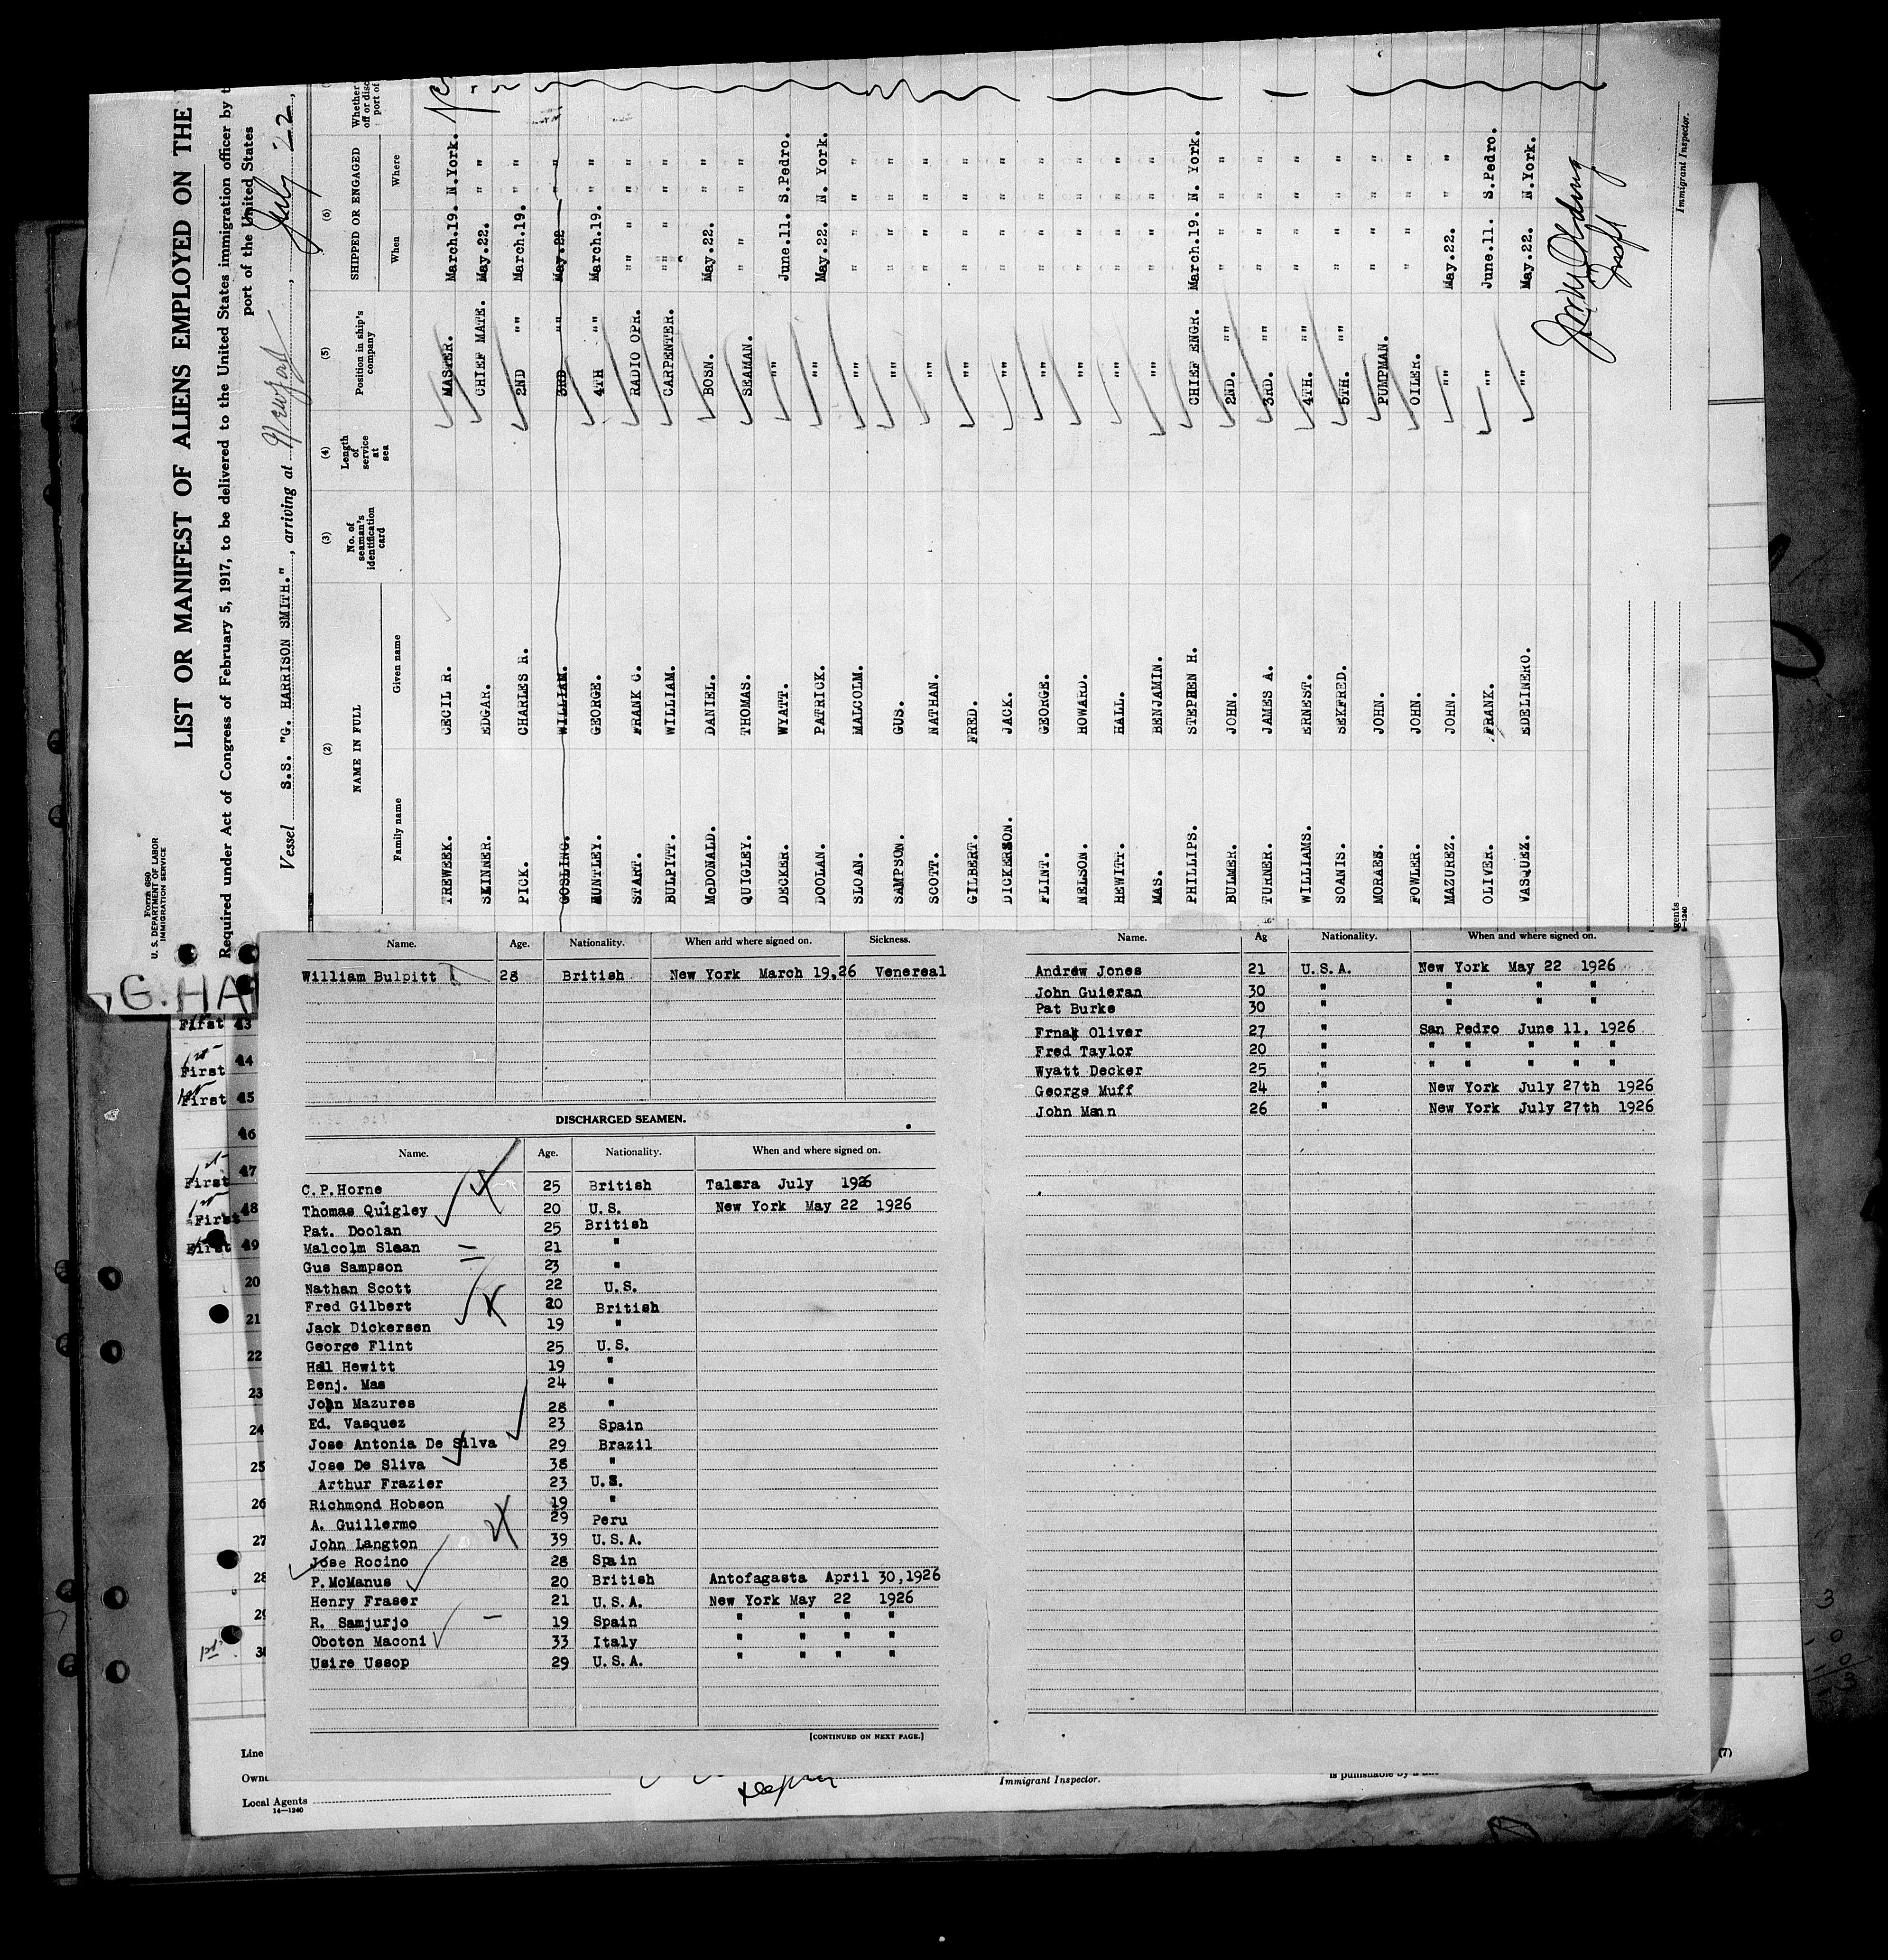 Form 680
U. S. DEPARTMENT OF LABOR
IMMIGRATION SERVICE
LIST OR MANIFEST OF ALIENS EMPLOYED ON THE
Required under Act of Congress of February 5, 1917, to be delivered to the United States immigration officer by
port of the United States
Vessel S.S. "G. HARRISON SMITH.", arriving at Newport, July 22,
(2) (3) (4) (5) (6)
NAME IN FULL No. of seaman's identification card Length of service at sea Position in ship's company SHIPPED OR ENGAGED Whether
Family name Given name When Where
TREWEEK. CECIL R. MASTER. March.19. N.York.
SKINNER. EDGAR. CHIEF MATE. May.22. " "
PICK. CHARLES R. 2ND "" March.19. "
GOSLING. WILLIAM. 3RD "" May.22 "
HUNTLEY. GEORGE. 4TH "" March.19. "
START. FRANK C. RADIO OPR. "" "
BULPITT. WILLIAM. CARPENTER. "" "
McDONALD. DANIEL. BOSN. May.22. "
QUIGLEY. THOMAS. SEAMAN. " "
DECKER. WYATT. "" June.11. S.Pedro.
DOOLAN. PATRICK. "" May.22. N. York.
SLOAN. MALCOLM. "" " "
SAMPSON. GUS. "" " "
SCOTT. NATHAN. "" " "
GILBERT. FRED. "" " "
DICKERSON. JACK. "" " "
FLINT. GEORGE. "" " "
NELSON. HOWARD. "" " "
HEWITT. HALL. "" " "
MAS. BENJAMIN. "" " "
PHILLIPS. STEPHEN H. CHIEF ENGR. March.19. N. York.
BULMER. JOHN. 2ND. "" " "
TURNER. JAMES A. 3RD. "" " "
WILLIAMS. ERNEST. 4TH. "" " "
SOANIS. SEKFRED. 5TH. "" " "
MORAES. JOHN. PUMPMAN. " "
FOWLER. JOHN. OILER. " "
MAZUREZ. JOHN. "" May.22. "
OLIVER. FRANK. "" June.11. S.Pedro.
VASQUEZ. EDELINERO. "" May.22. N.York.
Immigrant Inspector.
G.HA
First 43
First 44
First 45
46
First 47
First 48
First 49
20
21
22
23
24
25
26
27
28
29
30
Name. Age. Nationality. When and where signed on. Sickness.
William Bulpitt 28 British New York March 19,26 Venereal
DISCHARGED SEAMEN.
Name. Age. Nationality. When and where signed on.
C.P.Horne 25 British Talara July 1926
Thomas Quigley 20 U.S. New York May 22 1926
Pat. Doolan 25 British
Malcolm Sloan 21 "
Gus Sampson 23 "
Nathan Scott 22 U.S.
Fred Gilbert 20 British
Jack Dickersen 19 "
George Flint 25 U.S.
Hal Hewitt 19 "
Benj. Mas 24 "
John Mazures 28 "
Ed. Vasquez 23 Spain
Jose Antonia De Silva 29 Brazil
Jose De Sliva 38 "
Arthur Frazier 23 U.S.
Richmond Hobson 19 "
A. Guillermo 29 Peru
John Langton 39 U.S.A.
Jose Rocino 28 Spain
P.McManus 20 British Antofagasta April 30,1926
Henry Fraser 21 U.S.A. New York May 22 1926
R. Samjurjo 19 Spain " " " "
Oboton Maconi 33 Italy " " " "
Usire Ussop 29 U.S.A. " " " "
[CONTINUED ON NEXT PAGE.]
Name. Ag Nationality. When and where signed on.
Andrew Jones 21 U.S.A. New York May 22 1926
John Guieran 30 " " " "
Pat Burke 30 " " " "
Frnak Oliver 27 " San Pedro June 11, 1926
Fred Taylor 20 " " " " " "
Wyatt Decker 25 " " " " " "
George Muff 24 " New York July 27th 1926
John Mann 26 " New York July 27th 1926
Line
Owne
Local Agents
14—1240
Immigrant Inspector.
is punishable by a
(7)